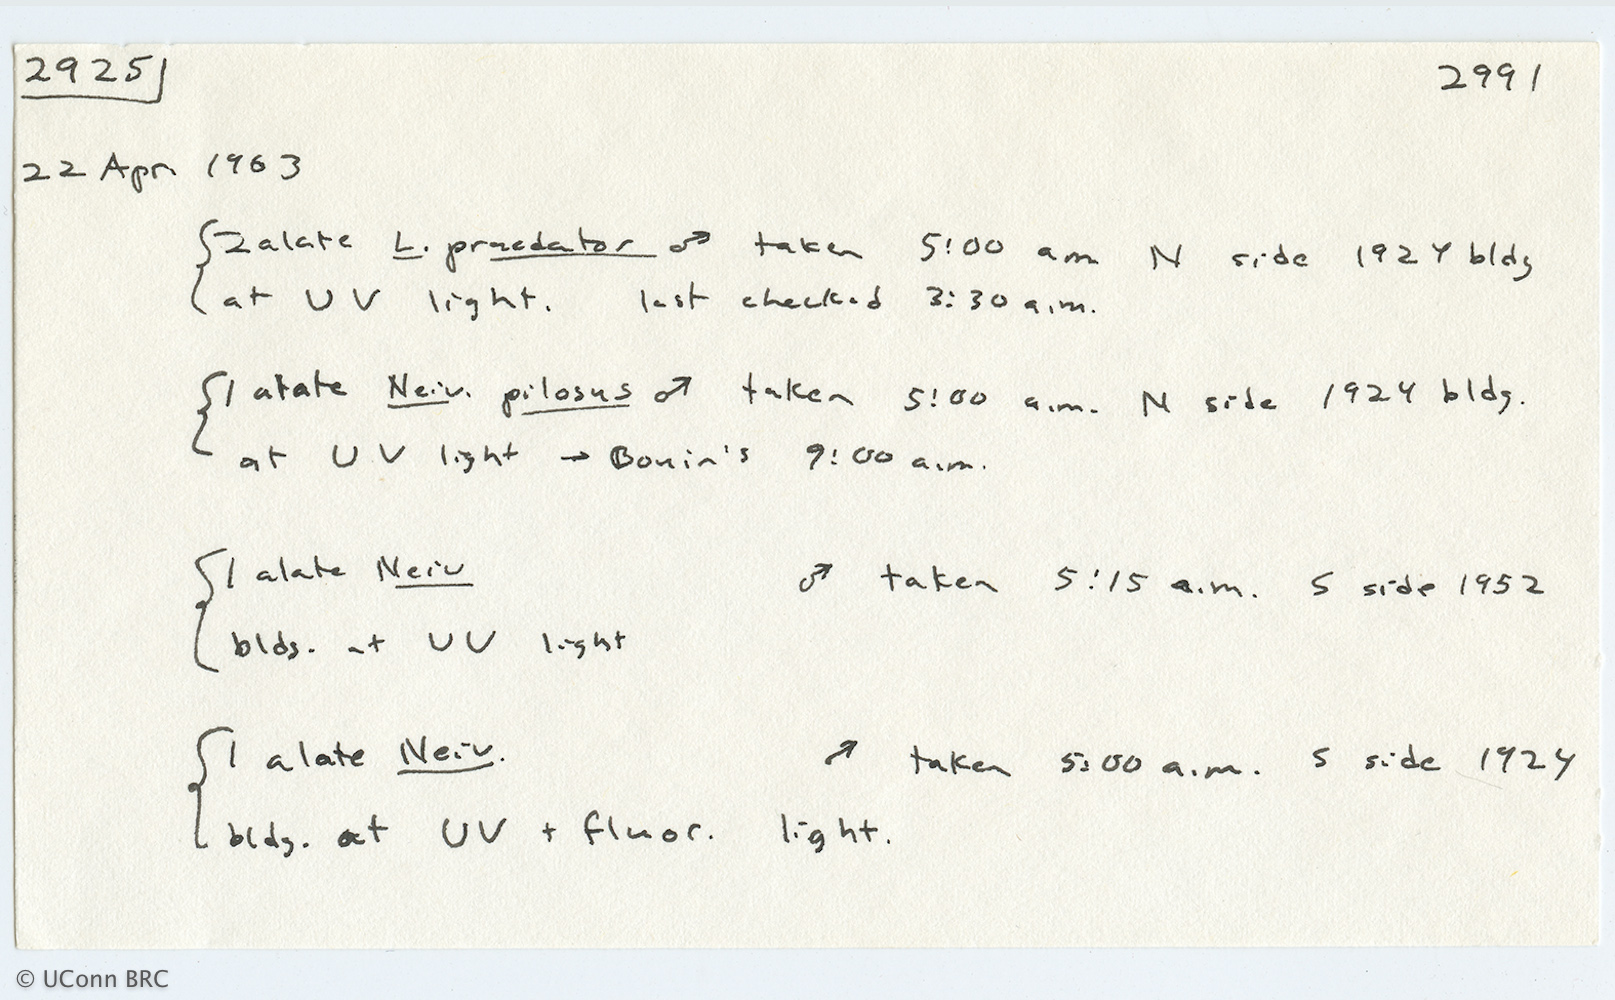 2925 2991
22 Apr 1963
2 alate L. praedator ♂ taken 5:00 a.m N side 1924 bldg
at UV light. last checked 3:30 a.m.
1 alate Neiv. pilosus ♂ taken 5:00 a.m. N side 1924 bldg.
at UV light → Bouin's 9:00 a.m.
1 alate Neiv ♂ taken 5:15 a.m. S side 1952
bldg. at UV light
1 alate Neiv. ♂ taken 5:00 a.m. S side 1924
bldg. at UV + fluor. light.
© UConn BRC